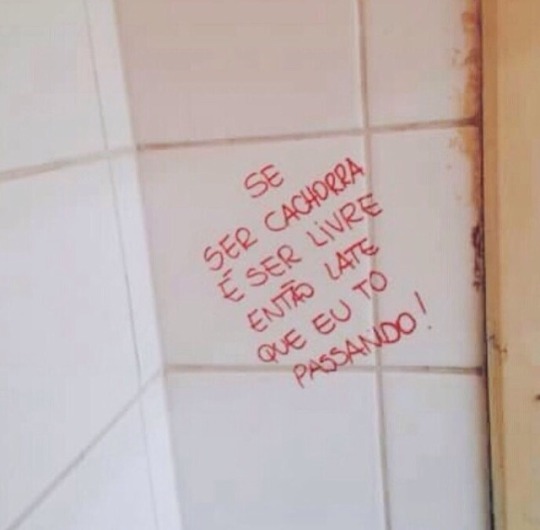 SE
SER CACHORRA
É SER LIVRE
ENTÃO LATE
QUE EU TO
PASSANDO!